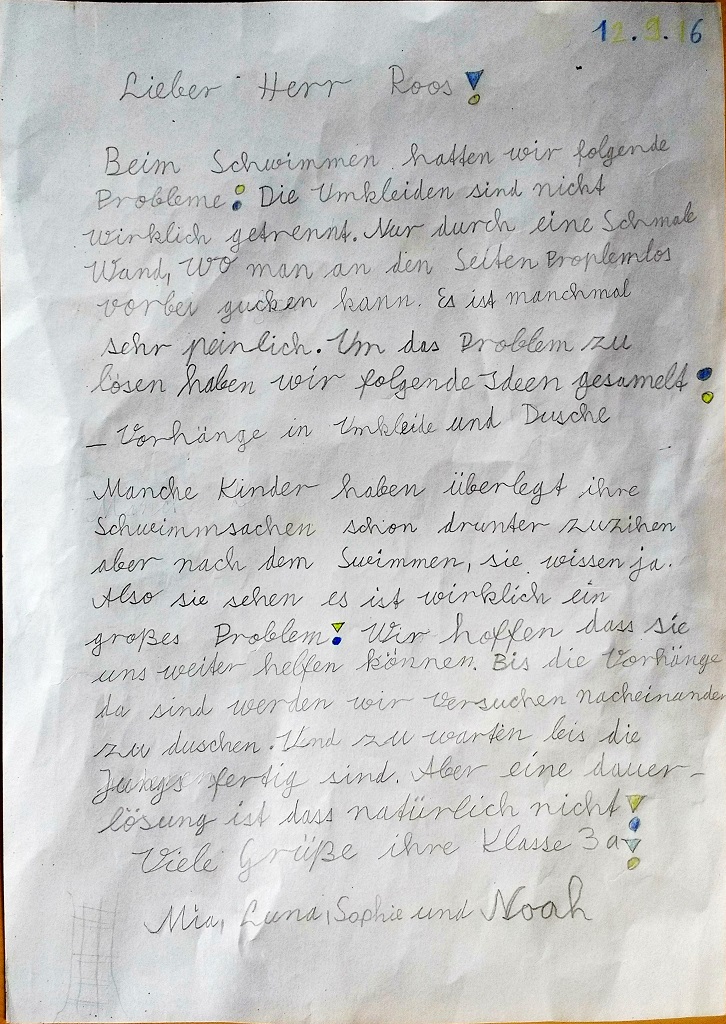 12.9.16
Lieber Herr Roos!
Beim Schwimmen hatten wir folgende
Probleme: Die Umkleiden sind nicht
wirklich getrennt. Nur durch eine Schmale
Wand, wo man an den Seiten Proplemlos
vorbei gucken kann. Es ist manchmal
sehr peinlich. Um das Problem zu
lösen haben wir folgende Ideen gesamelt:
- Vorhänge in Umkleide und Dusche
Manche Kinder haben überlegt ihre
Schwimmsachen schon drunter zuzihen
aber nach dem Swimmen, sie wissen ja.
Also sie sehen es ist wirklich ein
großes Problem! Wir hoffen dass sie
uns weiter helfen können. Bis die Vorhänge
da sind werden wir versuchen nacheinander
zu duschen. Und zu warten bis die
Jungs fertig sind. Aber eine dauer-
lösung ist dass natürlich nicht!
Viele Grüße ihre Klasse 3a!
Mia, Luna, Sophie und Noah